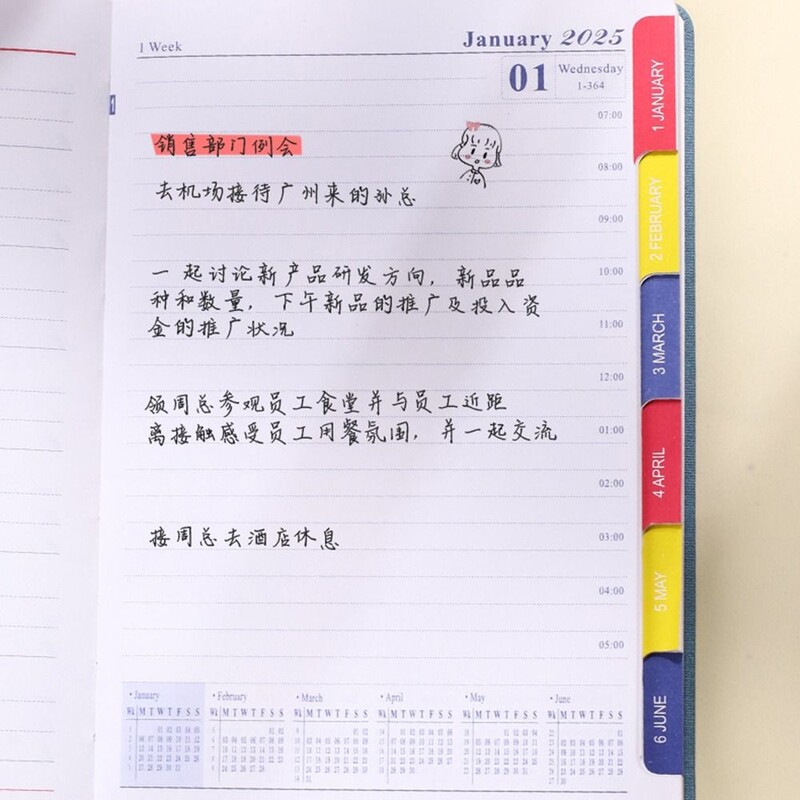 1 Week
January 2025
01
Wednesday
1-364
1
07:00
销售部门例会
08:00
去机场接待广州来的孙总
09:00
一起讨论新产品研发方向，新品品
10:00
种和数量，下午新品的推广及投入资
金的推广状况
11:00
12:00
领周总参观员工食堂并与员工近距
离接触感受员工用餐氛围，并一起交流
01:00
02:00
接周总去酒店休息
03:00
04:00
05:00
1 JANUARY
2 FEBRUARY
3 MARCH
4 APRIL
5 MAY
6 JUNE
January
Wk M T W T F S S
February
Wk M T W T F S S
March
Wk M T W T F S S
April
Wk M T W T F S S
May
Wk M T W T F S S
June
Wk M T W T F S S